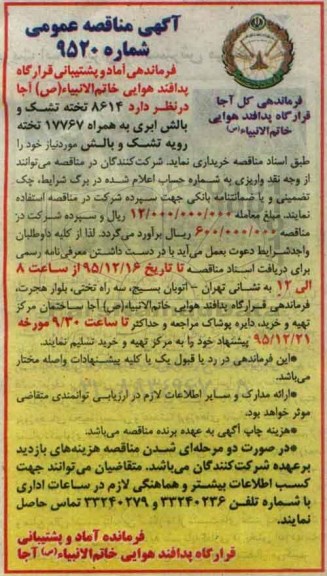 آگهی مناقصه عمومی
شماره ۹۵۲۰
فرماندهی کل آجا
قرارگاه پدافند هوایی
خاتم‌الانبیاء(ص)
فرماندهی آماد و پشتیبانی قرارگاه
پدافند هوایی خاتم‌الانبیاء(ص) آجا
درنظر دارد ۸۶۱۴ تخته تشک و
بالش ابری به همراه ۱۷۷۶۷ تخته
رویه تشک و بالش موردنیاز خود را
طبق اسناد مناقصه خریداری نماید. شرکت‌کنندگان در مناقصه می‌توانند
از وجه نقد واریزی به شماره حساب اعلام شده در برگ شرایط، چک
تضمینی و یا ضمانتنامه بانکی جهت سپرده شرکت در مناقصه استفاده
نمایند. مبلغ معامله ۱۲/۰۰۰/۰۰۰/۰۰۰ ریال و سپرده شرکت در
مناقصه ۶۰۰/۰۰۰/۰۰۰ ریال برآورد می‌گردد. لذا از کلیه داوطلبان
واجدشرایط دعوت بعمل می‌آید با در دست داشتن معرفی‌نامه رسمی
برای دریافت اسناد مناقصه تا تاریخ ۹۵/۱۲/۱۶ از ساعت ۸
الی ۱۲ به نشانی تهران - اتوبان بسیج، سه راه تختی، بلوار هجرت،
فرماندهی قرارگاه پدافند هوایی خاتم‌الانبیاء(ص) آجا ساختمان مرکز
تهیه و خرید، دایره پوشاک مراجعه و حداکثر تا ساعت ۹/۳۰ مورخه
۹۵/۱۲/۲۱ پیشنهاد خود را به مرکز تهیه و خرید تسلیم نمایند.
•این فرماندهی در رد یا قبول یک یا کلیه پیشنهادات واصله مختار
می‌باشد.
•ارائه مدارک و سایر اطلاعات لازم در ارزیابی توانمندی متقاضی
موثر خواهد بود.
•هزینه چاپ آگهی به عهده برنده مناقصه می‌باشد.
•در صورت دو مرحله‌ای شدن مناقصه هزینه‌های بازدید
برعهده شرکت‌کنندگان می‌باشد. متقاضیان می‌توانند جهت
کسب اطلاعات بیشتر و هماهنگی لازم در ساعات اداری
با شماره تلفن ۳۳۲۴۰۲۳۶ و ۳۳۲۴۰۲۷۹ تماس حاصل
نمایند.
فرمانده آماد و پشتیبانی
قرارگاه پدافند هوایی خاتم‌الانبیاء(ص) آجا